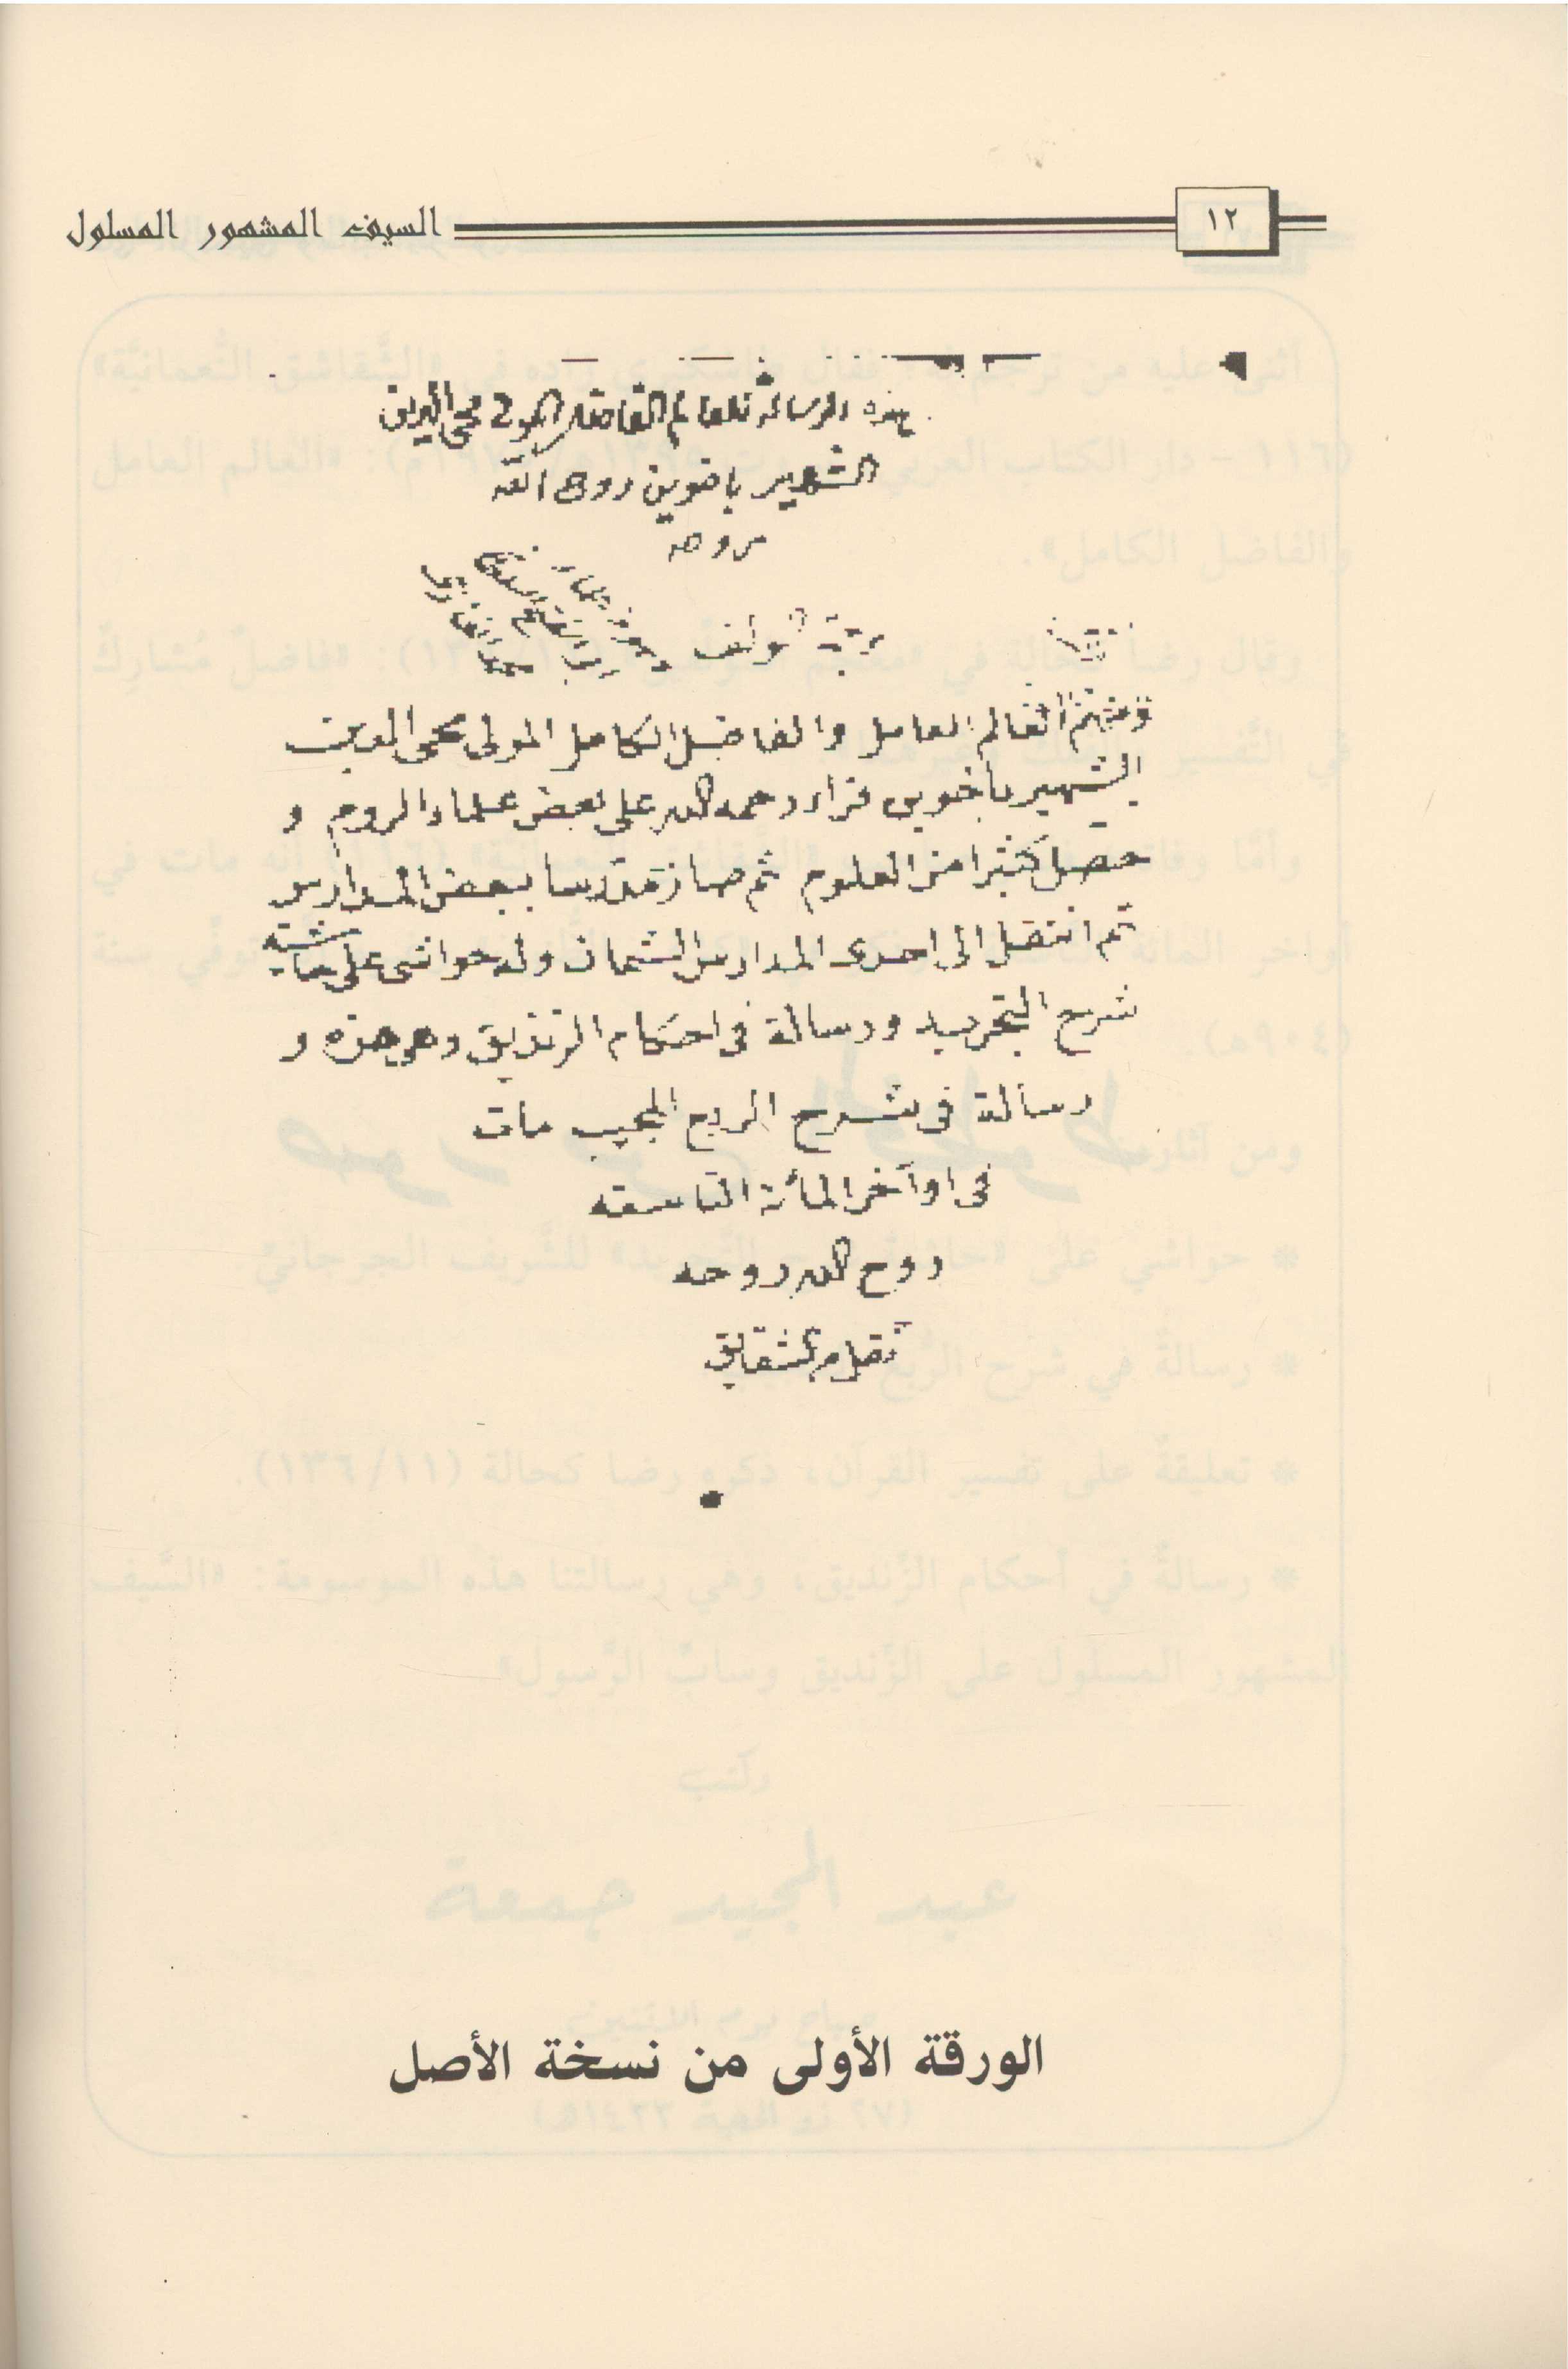 ١٢
السيف المشهور المسلول
هذه الرسالة للعالم الفاضل المولى محي الدين
الشهير باخوين روح الله
روحه
ومنهم العالم العامل والفاضل الكامل المولى محى الدين
الشهير باخوين قراء رحمه الله على بعض علماء الروم و
حصل كثيرا من العلوم ثم صار مدرسا ببعض المدارس
ثم انتقل الى احدى المدارس الثمان وله حواشى على حاشية
شرح التجريد ورسالة فى احكام الزنديق وهى هذه و
رسالة فى شرح الربع المجيب مات
فى اواخر المائة التاسعه
روح الله روحه
نقل من الشقايق
الورقة الأولى من نسخة الأصل